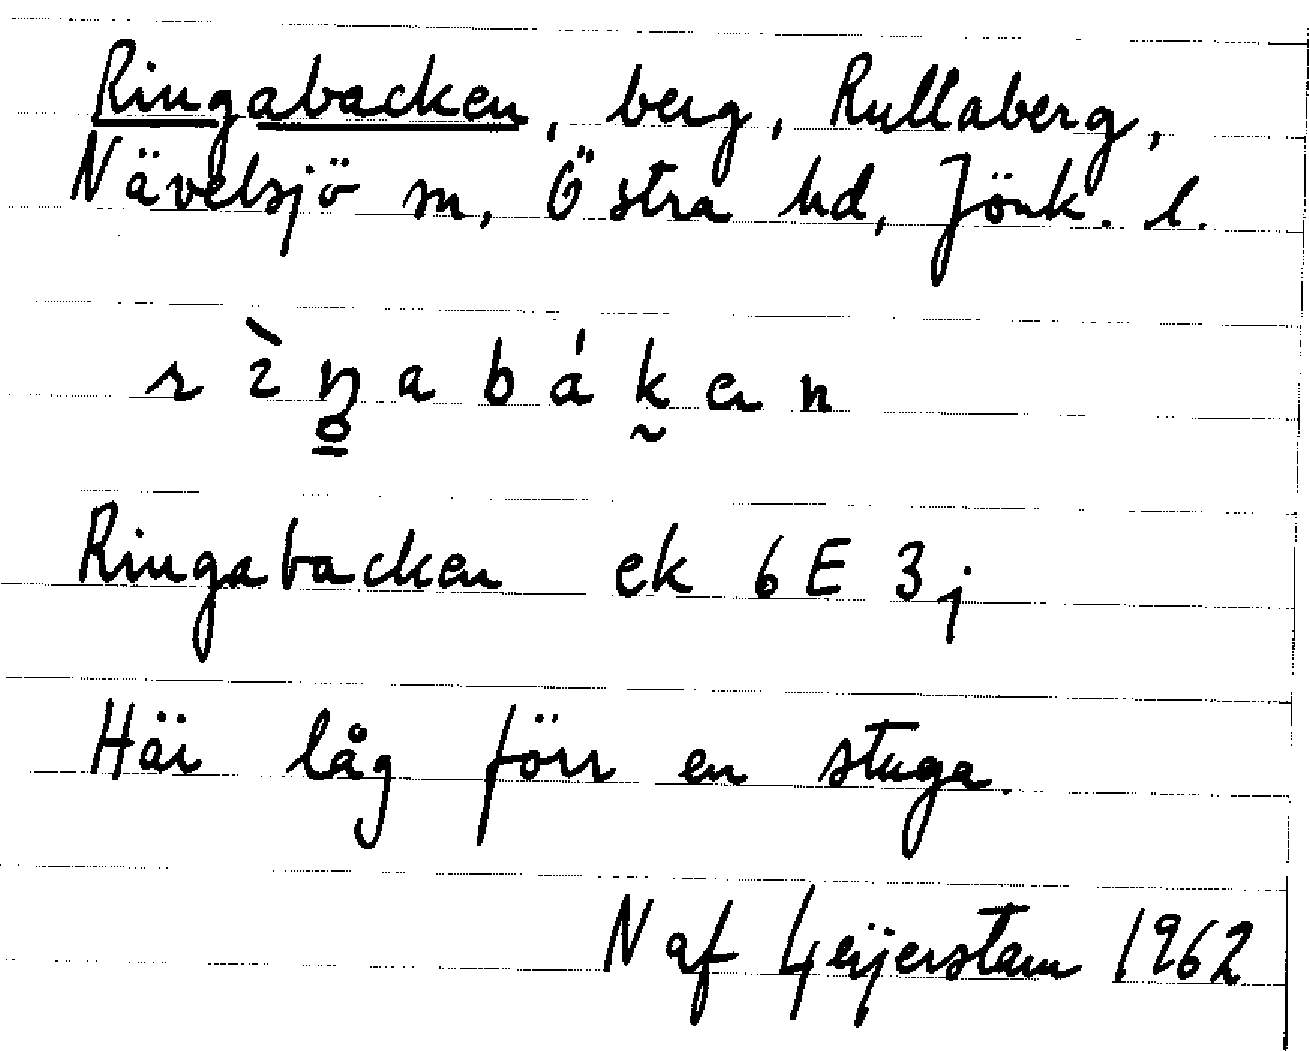 Ringabacken, berg, Rullaberg,
Nävelsjö sn, Östra hd, Jönk. l.
r ì ŋ a b á k e n
Ringabacken ek 6 E 3 j
Här låg förr en stuga.
N af Geijerstam 1962